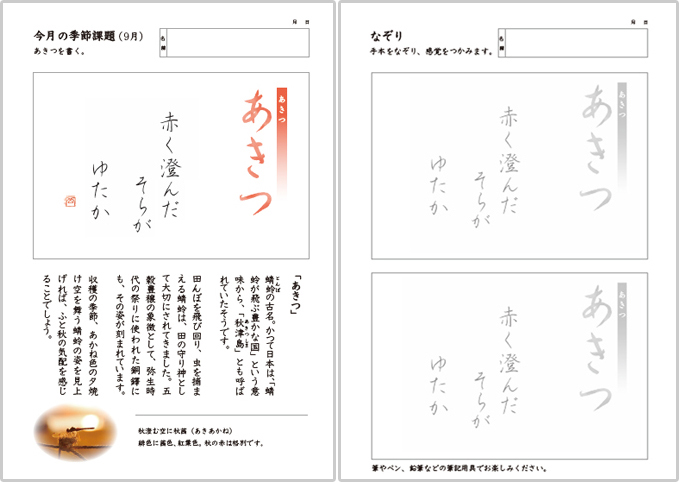 月 日
今月の季節課題(9月)
あきつを書く。
名前
あきつ
あきつ
赤く澄んだ
そらが
ゆたか
「あきつ」
蜻蛉の古名。かつて日本は、「蜻
とんぼ
蛉が飛ぶ豊かな国」という意
味から、「秋津島」とも呼ば
あきつしま
れていたそうです。
田んぼを飛び回り、虫を捕ま
える蜻蛉は、田の守り神とし
て大切にされてきました。五
穀豊穣の象徴として、弥生時
代の祭りに使われた銅鐸に
も、その姿が刻まれています。
収穫の季節、あかね色の夕焼
け空を舞う蜻蛉の姿を見上
げれば、ふと秋の気配を感じ
ることでしょう。
秋澄む空に秋茜（あきあかね）
緋色に茜色、紅葉色。秋の赤は格別です。
月 日
なぞり
手本をなぞり、感覚をつかみます。
名前
あきつ
あきつ
赤く澄んだ
そらが
ゆたか
あきつ
あきつ
赤く澄んだ
そらが
ゆたか
筆やペン、鉛筆などの筆記用具でお楽しみください。